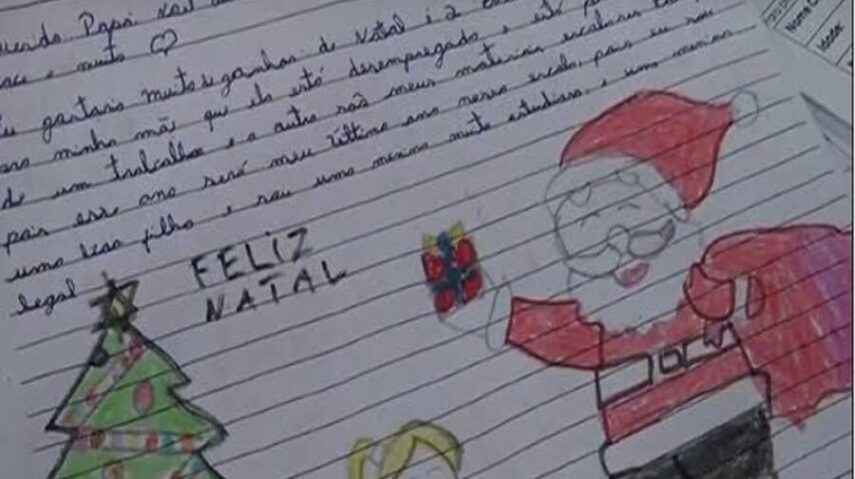 Querido Papai Noel
e muito
Eu gostaria muito de ganhar de Natal é 2
para minha mãe que ela está desempregada e está
de um trabalho e o outro são meus materiais escolares
pois esse ano será meu último ano nessa escola, pois eu sou
uma boa filha e sou uma menina muito estudiosa, e uma menina
legal
FELIZ
NATAL
Nome
Idade: